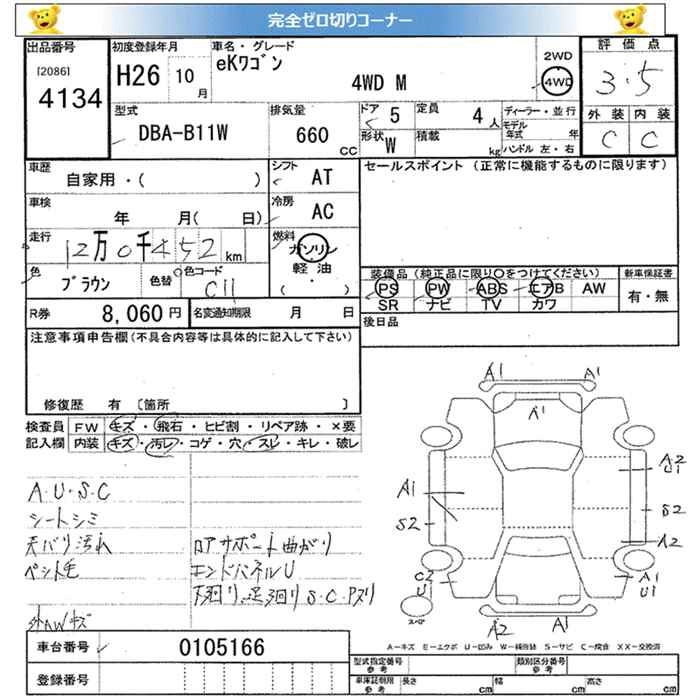 完全ゼロ切りコーナー
出品番号
[2086]
4134
初度登録年月
H26 10月
車名・グレード
eKワゴン
4WD M
2WD
4WD
評価点
3.5
外装 内装
C C
型式
DBA-B11W
排気量
660 CC
ドア 5
形状 W
定員 4 人
積載 kg
ディーラー・並行
モデル年式 年
ハンドル 左・右
車歴
自家用・( )
シフト AT
車検
年 月( 日)
冷房 AC
走行
12万0千452km
燃料
ガソリン
軽油
( ・ )
色
ブラウン
色替
色コード
C11
セールスポイント (正常に機能するものに限ります)
装備品 (純正品に限り〇をつけてください)
PS PW ABS エアB AW
SR ナビ TV カワ
新車保証書
有・無
R券 8,060円
名変通知期限 月 日
後日品
注意事項申告欄(不具合内容等は具体的に記入して下さい)
修復歴 有 〔箇所 〕
検査員記入欄
FW キズ・飛石・ヒビ割・リペア跡・×要
内装 キズ・汚レ・コゲ・穴・スレ・キレ・破レ
A・U・S・C
シートシミ
天バリ汚れ
ペット毛
外AWキズ
ロアサポート曲がり
エンドパネルU
下廻り、足廻りS・C・Pヌリ
A1
A1
A1
A1
S2
A2
U1
S2
A2
C2
U1
A1
U1
スペア
A2
A1
A-キズ E-エクボ U-凹み W-補修跡 S-サビ C-腐食 XX-交換済
車台番号 0105166
登録番号
型式指定番号 参考
類別区分番号 参考
車庫証明用 参考
長さ cm
幅 cm
高さ cm